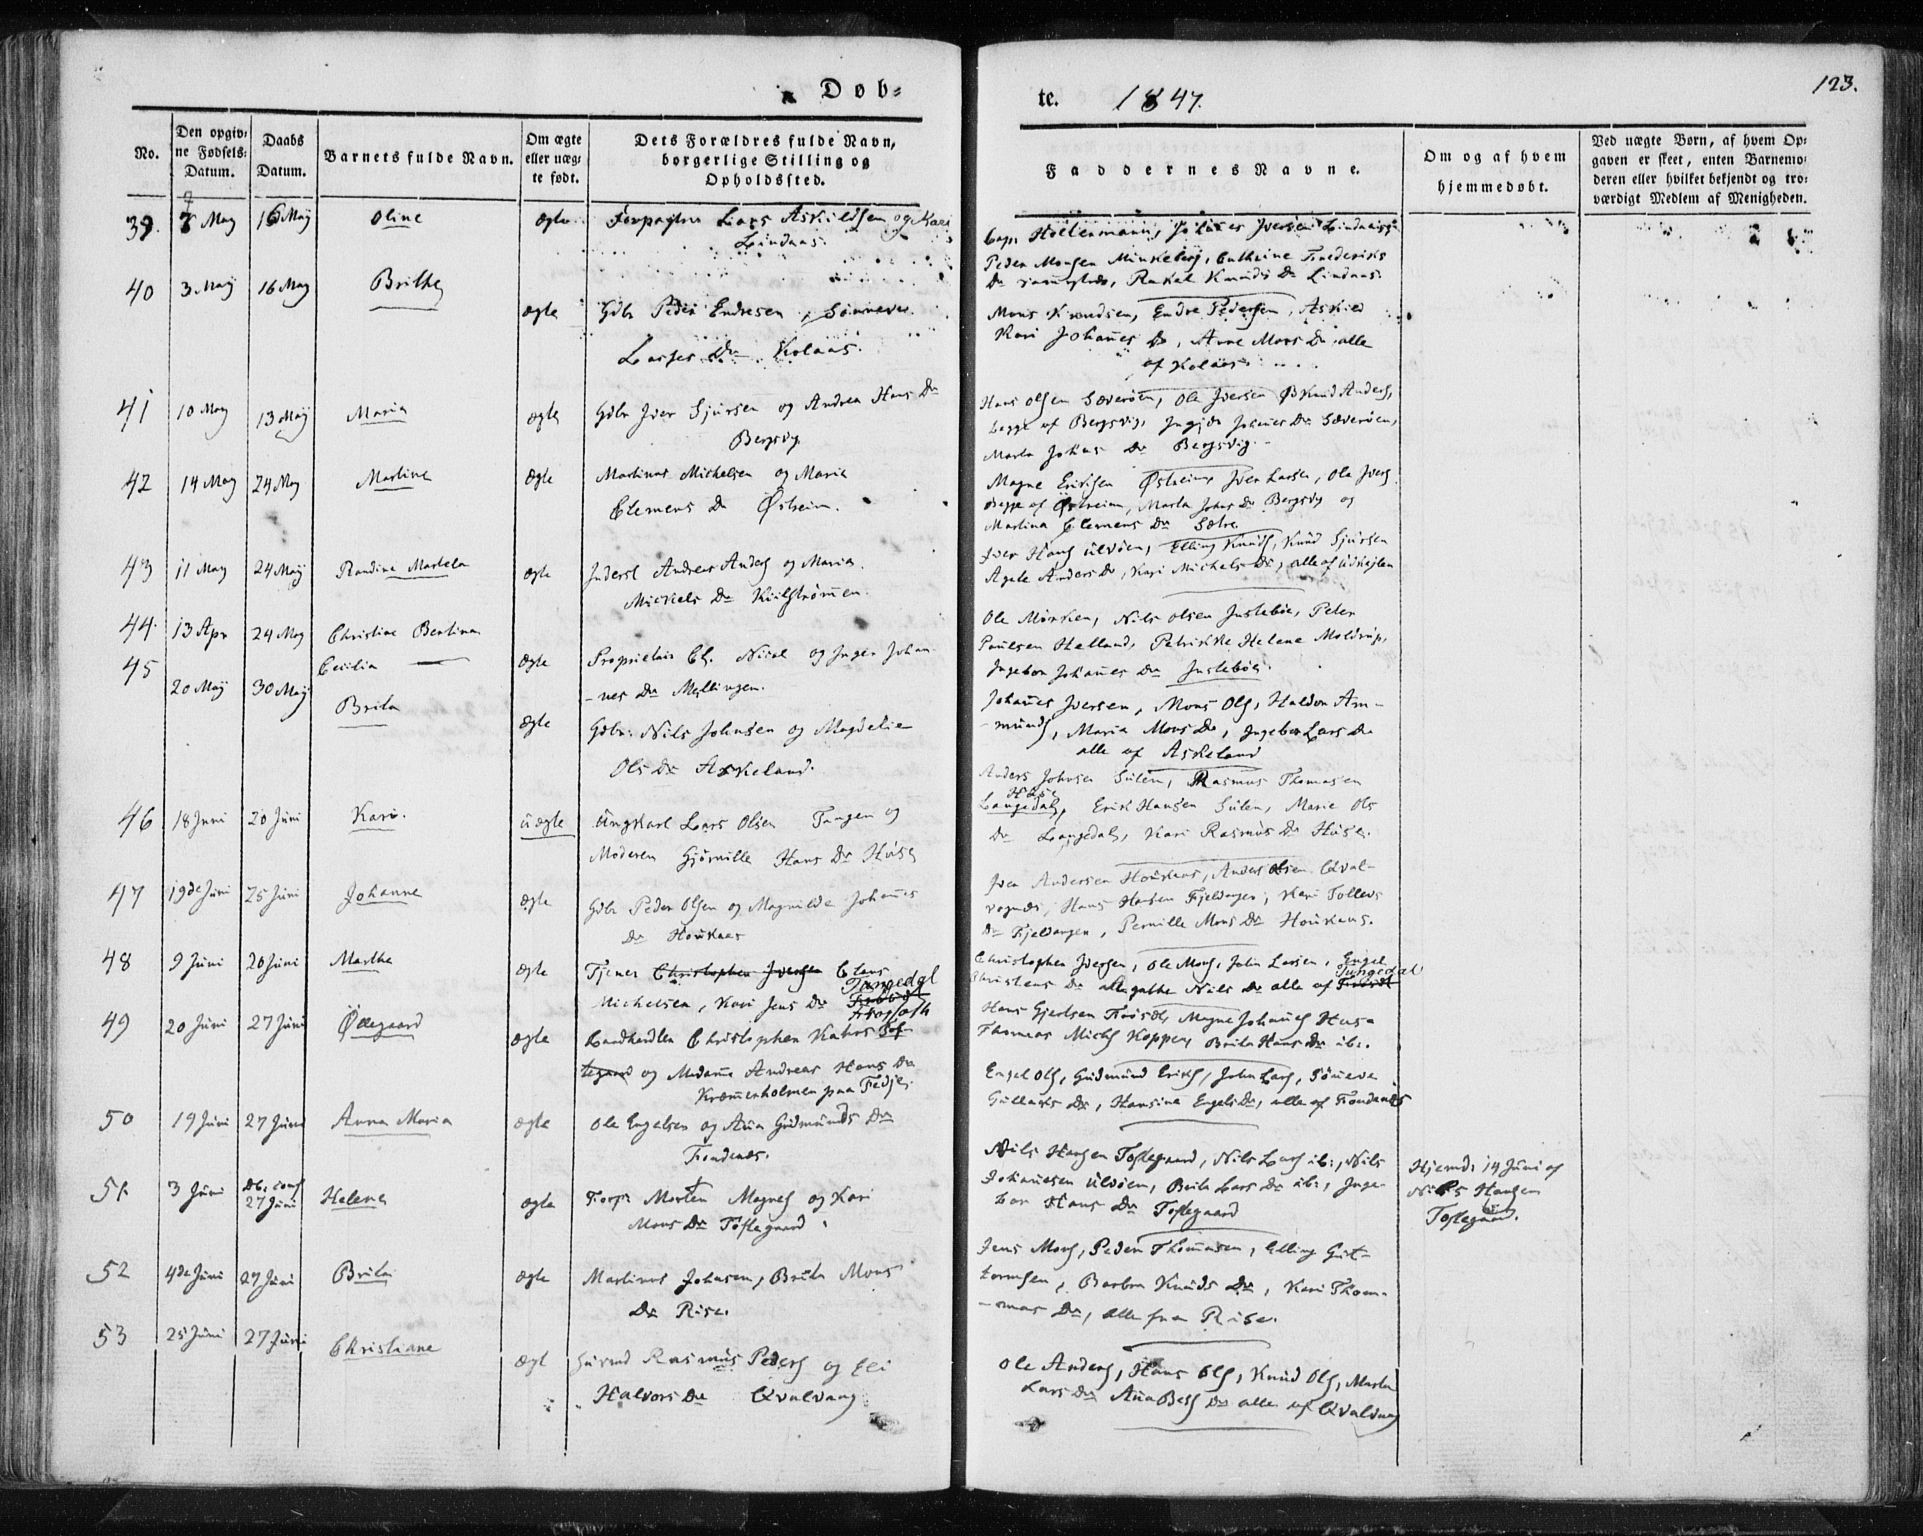 Døb=
te. 1847.
123.
No.
Den opgiv=
ne Fødsels=
Datum.
Daabs
Datum.
Barnets fulde Navn.
Om ægte
eller uæg=
te født.
Dets Forældres fulde Navn,
borgerlige Stilling og
Opholdssted.
Faddernes Navne.
Om og af hvem
hjemmedøbt.
Ved uægte Børn, af hvem Op=
gaven er skeet, enten Barnemo=
deren eller hvilket bekjendt og tro=
værdigt Medlem af Menigheden.
39. 7 May 16 May Oline ægte Forpagter Lars Askildsen og Kari
Lindaas.
Peder Monsen Cathrine Frederiks
Dr Rakel Knuds Dr Lindaas.
40 3 May 16 May Brithe ægte Gdbr Peder Endresen, Sønneve
Lasses Dr Kolaas.
Mons Knudsen, Endre Pedersen, Askild
Kari Johañes Dr, Anne Mons Dr, alle
af Kolaas.
41 10 May 13 May Maria ægte Gdbr Iver Sjursen og Andrea Hans Dr
Bergsvig
Hans Olsen Sæverøen, Ole Iversen Knud Anders,
begge af Bergsvig, Johañes Dr Sæverøen,
Marta Johans Dr Bergsvig.
42 14 May 24 May Martine ægte Martinus Michelsen og Maria
Clemens Dr Østreim.
Magne Eriksen Østreim, Iver Larsen, Ole Ivers
begge af Østreim, Marta Johns Dr Bergsvig og
Martina Clemens Dr Sætre
43 11 May 24 May Randine Martela ægte Inderst Andreas Anders og Maria
Mickels Dr Kiilstrømen.
Iver Hans Ulvøen, Elling Knuds, Knud Sjursen
Agate Anders Dr, Kari Michels Dr, alle af
44. 13 Apr 24 May Christine Bertina
Cecilia ægte Proprietair Cl. Nicol og Inger Johan
-nes Dr Mellingen.
Ole Mörken, Nils Olsen Justebøe, Peter
Paulsen Helland, Petrikke Helene Moldrup,
Ingebor Johañes Dr Justebøe.
45 20 May 30 May Brita ægte Gdbr. Nils Johnsen og Magdelie
Ols Dr Askeland.
Johañes Iversen, Mons Ols, Haldor Am-
-munds, Maria Mons Dr, Ingebor Lars Dr
alle af Askeland
46 18 Juni 20 Juni Kari. uægte Ungkarl Lars Olsen Tangen og
Moderen Gjörville Hans Dr Huse
Anders Johnsen Sulen, Rasmus Thomasen
Huse
Langedal, Erik Hansen Sulen, Marie Ols
Dr Langedal, Kari Rasmus Dr Huse.
47 19de Juni 25 Juni Johanne ægte Gdbr Peder Olsen og Magnilde Johañes
Dr Houkaas
Iver Andersen Houkaas, Anders Olsen Qval-
vognæs, Hans Hansen Fjeldanger, Kari Tollevs
Dr Fjeldangen, Pernille Mons Dr Houkaas.
48 9 Juni 20 Juni Marthe ægte Tjener Christopher Iversen Claus
Tangedal
Michelsen, Kari Jens Dr
Christopher Iversen, Ole Mons, John Larsen, Engel
Tangedal
Christens Dr Agathe Nils Dr alle af
49 20 Juni 27 Juni Ødegaard ægte Landhandler Christopher Kahrs
og Madame Andreas Hans Dr
Kræmerholmen paa Fedje.
Hans Gjertsen Magne Johañes Huse
Thomas Michs Koppen, Brita Hans Dr ib:.
50 19 Juni 27 Juni Anna Maria ægte Ole Engelsen og Aña Gudmunds Dr
Fondenæs.
Engel Ols, Gudmund Eriks, John Lars, Söneve
Gullaks Dr, Hansine Engels Dr, alle af Fondenæs
51 3 Juni Db: conf
27 Juni Helene ægte Forp. Morten Magnes og Kari
Mons Dr Toftegaard
Nils Hansen Toftegaard, Nils Lars ib:, Nils
Johañesen Ulvøen, Brite Lars Dr ib:, Inge-
bor Hans Dr Toftegaard
Hjemd. 14 Juni af
Nils Hansen
Toftegaard.
52 4de Juni 27 Juni Brita ægte Martinus Johnsen, Brita Mons
Dr Risa.
Jens Mons, Peder Thomasen, Elling Gut-
tormsen, Barbra Knuds Dr, Kari Thom-
-mas Dr, alle fra Rise.
53 25 Juni 27 Juni Christiane ægt Rasmus Peders og Eli
Halvors Dr Qvalvaag
Ole Anders, Hans Ols, Knud Ols, Marta
Lars Dr Aña Dr alle af Qvalvaag